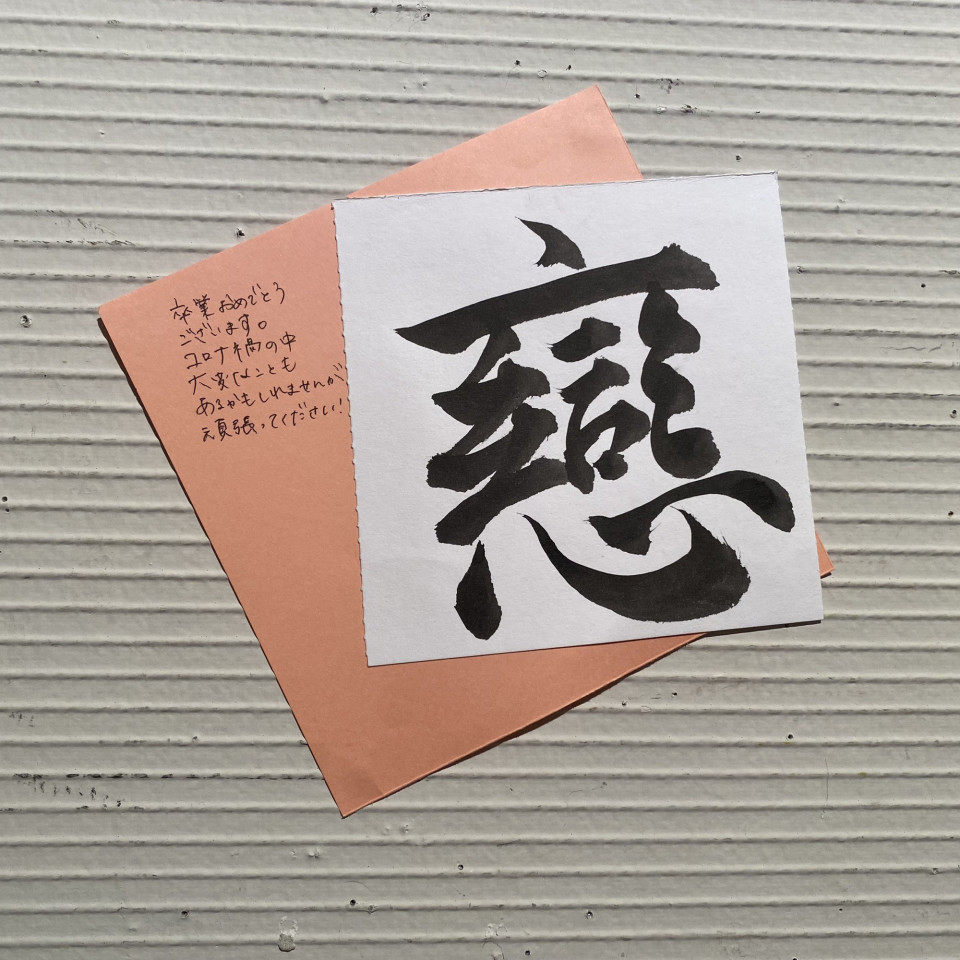 卒業おめでとう
ございます。
コロナ禍の中
大変なことも
あるかもしれませんが
頑張ってください!
戀